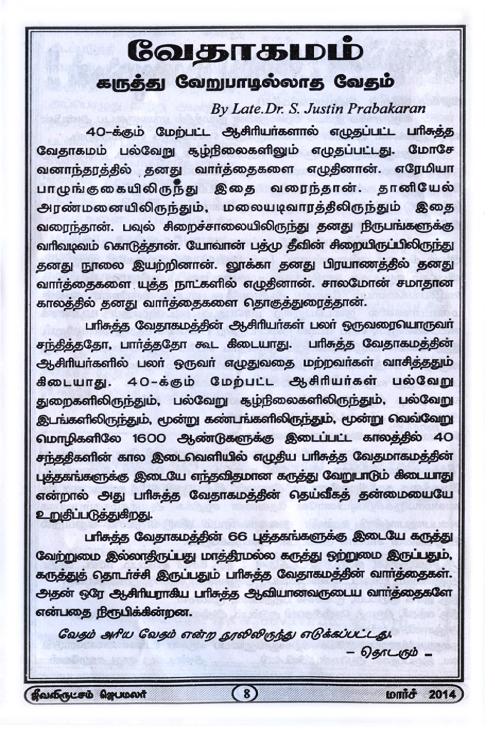 வேதாகமம்
கருத்து வேறுபாடில்லாத வேதம்
By Late.Dr. S. Justin Prabakaran
40-க்கும் மேற்பட்ட ஆசிரியர்களால் எழுதப்பட்ட பரிசுத்த
வேதாகமம் பல்வேறு சூழ்நிலைகளிலும் எழுதப்பட்டது. மோசே
வனாந்தரத்தில் தனது வார்த்தைகளை எழுதினான். எரேமியா
பாழுங்குகையிலிருந்து இதை வரைந்தான். தானியேல்
அரண்மனையிலிருந்தும், மலையடிவாரத்திலிருந்தும் இதை
வரைந்தான். பவுல் சிறைச்சாலையிலிருந்து தனது நிருபங்களுக்கு
வரிவடிவம் கொடுத்தான். யோவான் பத்மு தீவின் சிறையிருப்பிலிருந்து
தனது நூலை இயற்றினான். லூக்கா தனது பிரயாணத்தில் தனது
வார்த்தைகளை யுத்த நாட்களில் எழுதினான். சாலமோன் சமாதான
காலத்தில் தனது வார்த்தைகளை தொகுத்துரைத்தான்.
பரிசுத்த வேதாகமத்தின் ஆசிரியர்கள் பலர் ஒருவரையொருவர்
சந்தித்ததோ, பார்த்ததோ கூட கிடையாது. பரிசுத்த வேதாகமத்தின்
ஆசிரியர்களில் பலர் ஒருவர் எழுதுவதை மற்றவர்கள் வாசித்ததும்
கிடையாது. 40-க்கும் மேற்பட்ட ஆசிரியர்கள் பல்வேறு
துறைகளிலிருந்தும், பல்வேறு சூழ்நிலைகளிலிருந்தும், பல்வேறு
இடங்களிலிருந்தும், மூன்று கண்டங்களிலிருந்தும், மூன்று வெவ்வேறு
மொழிகளிலே 1600 ஆண்டுகளுக்கு இடைப்பட்ட காலத்தில் 40
சந்ததிகளின் கால இடைவெளியில் எழுதிய பரிசுத்த வேதமாகமத்தின்
புத்தகங்களுக்கு இடையே எந்தவிதமான கருத்து வேறுபாடும் கிடையாது
என்றால் அது பரிசுத்த வேதாகமத்தின் தெய்வீகத் தன்மையையே
உறுதிப்படுத்துகிறது.
பரிசுத்த வேதாகமத்தின் 66 புத்தகங்களுக்கு இடையே கருத்து
வேற்றுமை இல்லாதிருப்பது மாத்திரமல்ல கருத்து ஒற்றுமை இருப்பதும்,
கருத்துத் தொடர்ச்சி இருப்பதும் பரிசுத்த வேதாகமத்தின் வார்த்தைகள்.
அதன் ஒரே ஆசிரியராகிய பரிசுத்த ஆவியானவருடைய வார்த்தைகளே
என்பதை நிரூபிக்கின்றன.
வேதம் அரிய வேதம் என்ற நூலிலிருந்து எடுக்கப்பட்டது.
– தொடரும் –
ஜீவவிருட்சம் ஜெபமலர் 8 மார்ச் 2014